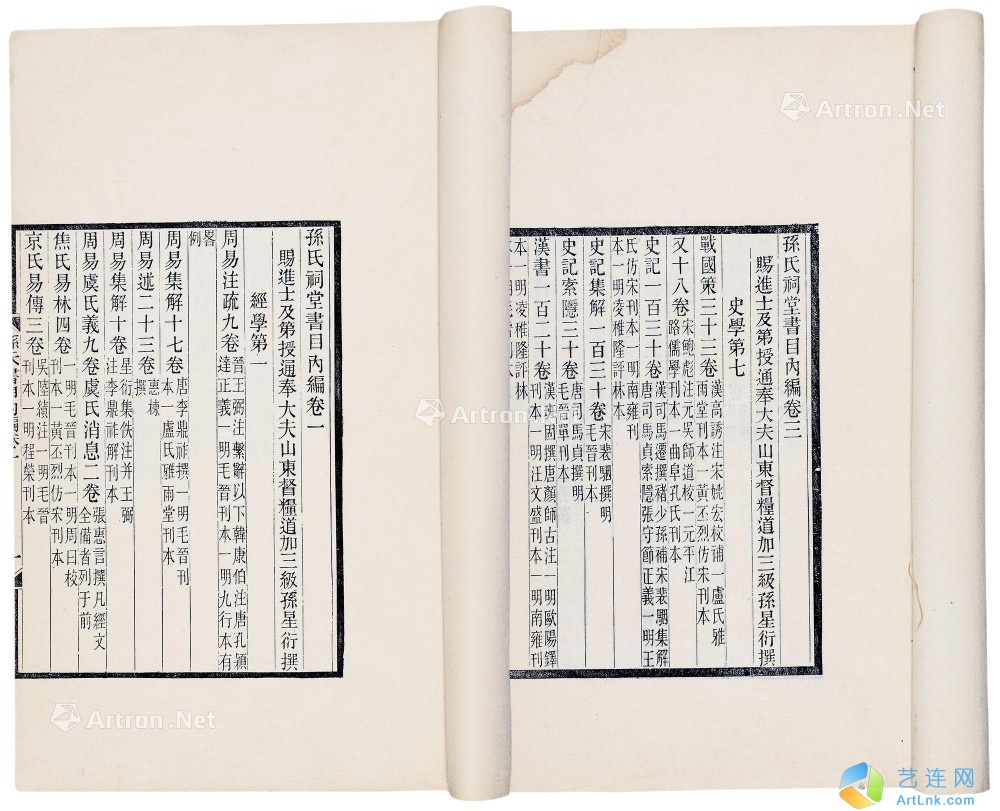 孫氏祠堂書目內編卷三
賜進士及第授通奉大夫山東督糧道加三級孫星衍撰
史學第七
戰國策三十三卷 漢高誘注宋姚宏校補一盧氏雅
雨堂刊本一黃丕烈仿宋刊本
又十八卷 宋鮑彪注元吳師道校一元平江
路儒學刊本一曲阜孔氏刊本
史記一百三十卷 漢司馬遷撰褚少孫補宋裴駰集解
唐司馬貞索隱張守節正義一明王
氏仿宋刊本一明南雍刊
本一明凌稚隆評林本
史記集解一百三十卷 宋裴駰撰明
毛晉刊本
史記索隱三十卷 唐司馬貞撰明
毛晉單刊本
漢書一百二十卷 漢班固撰唐顏師古注一明歐陽鐸
刊本一明汪文盛刊本一明南雍刊
本一明凌稚隆評林
孫氏祠堂書目內編卷一
賜進士及第授通奉大夫山東督糧道加三級孫星衍撰
經學第一
周易注疏九卷 晉王弼注繫辭以下韓康伯注唐孔穎
達正義一明毛晉刊本一明九行本有
畧
例
周易集解十七卷 唐李鼎祚撰一明毛晉刊
本一盧氏雅雨堂刊本
周易述二十三卷 惠棟
撰
周易集解十卷 星衍集佚注并王弼
注李鼎祚解刊本
周易虞氏義九卷虞氏消息二卷 張惠言撰凡經文
全備者列于前
焦氏易林四卷 一明毛晉刊本一明周曰校
刊本一黃丕烈仿宋刊本
京氏易傳三卷 吳陸績注一明毛晉
刊本一明程榮刊本
Artron.Net
Artron.Net
Artron.Net
艺连网
ArtLnk.com